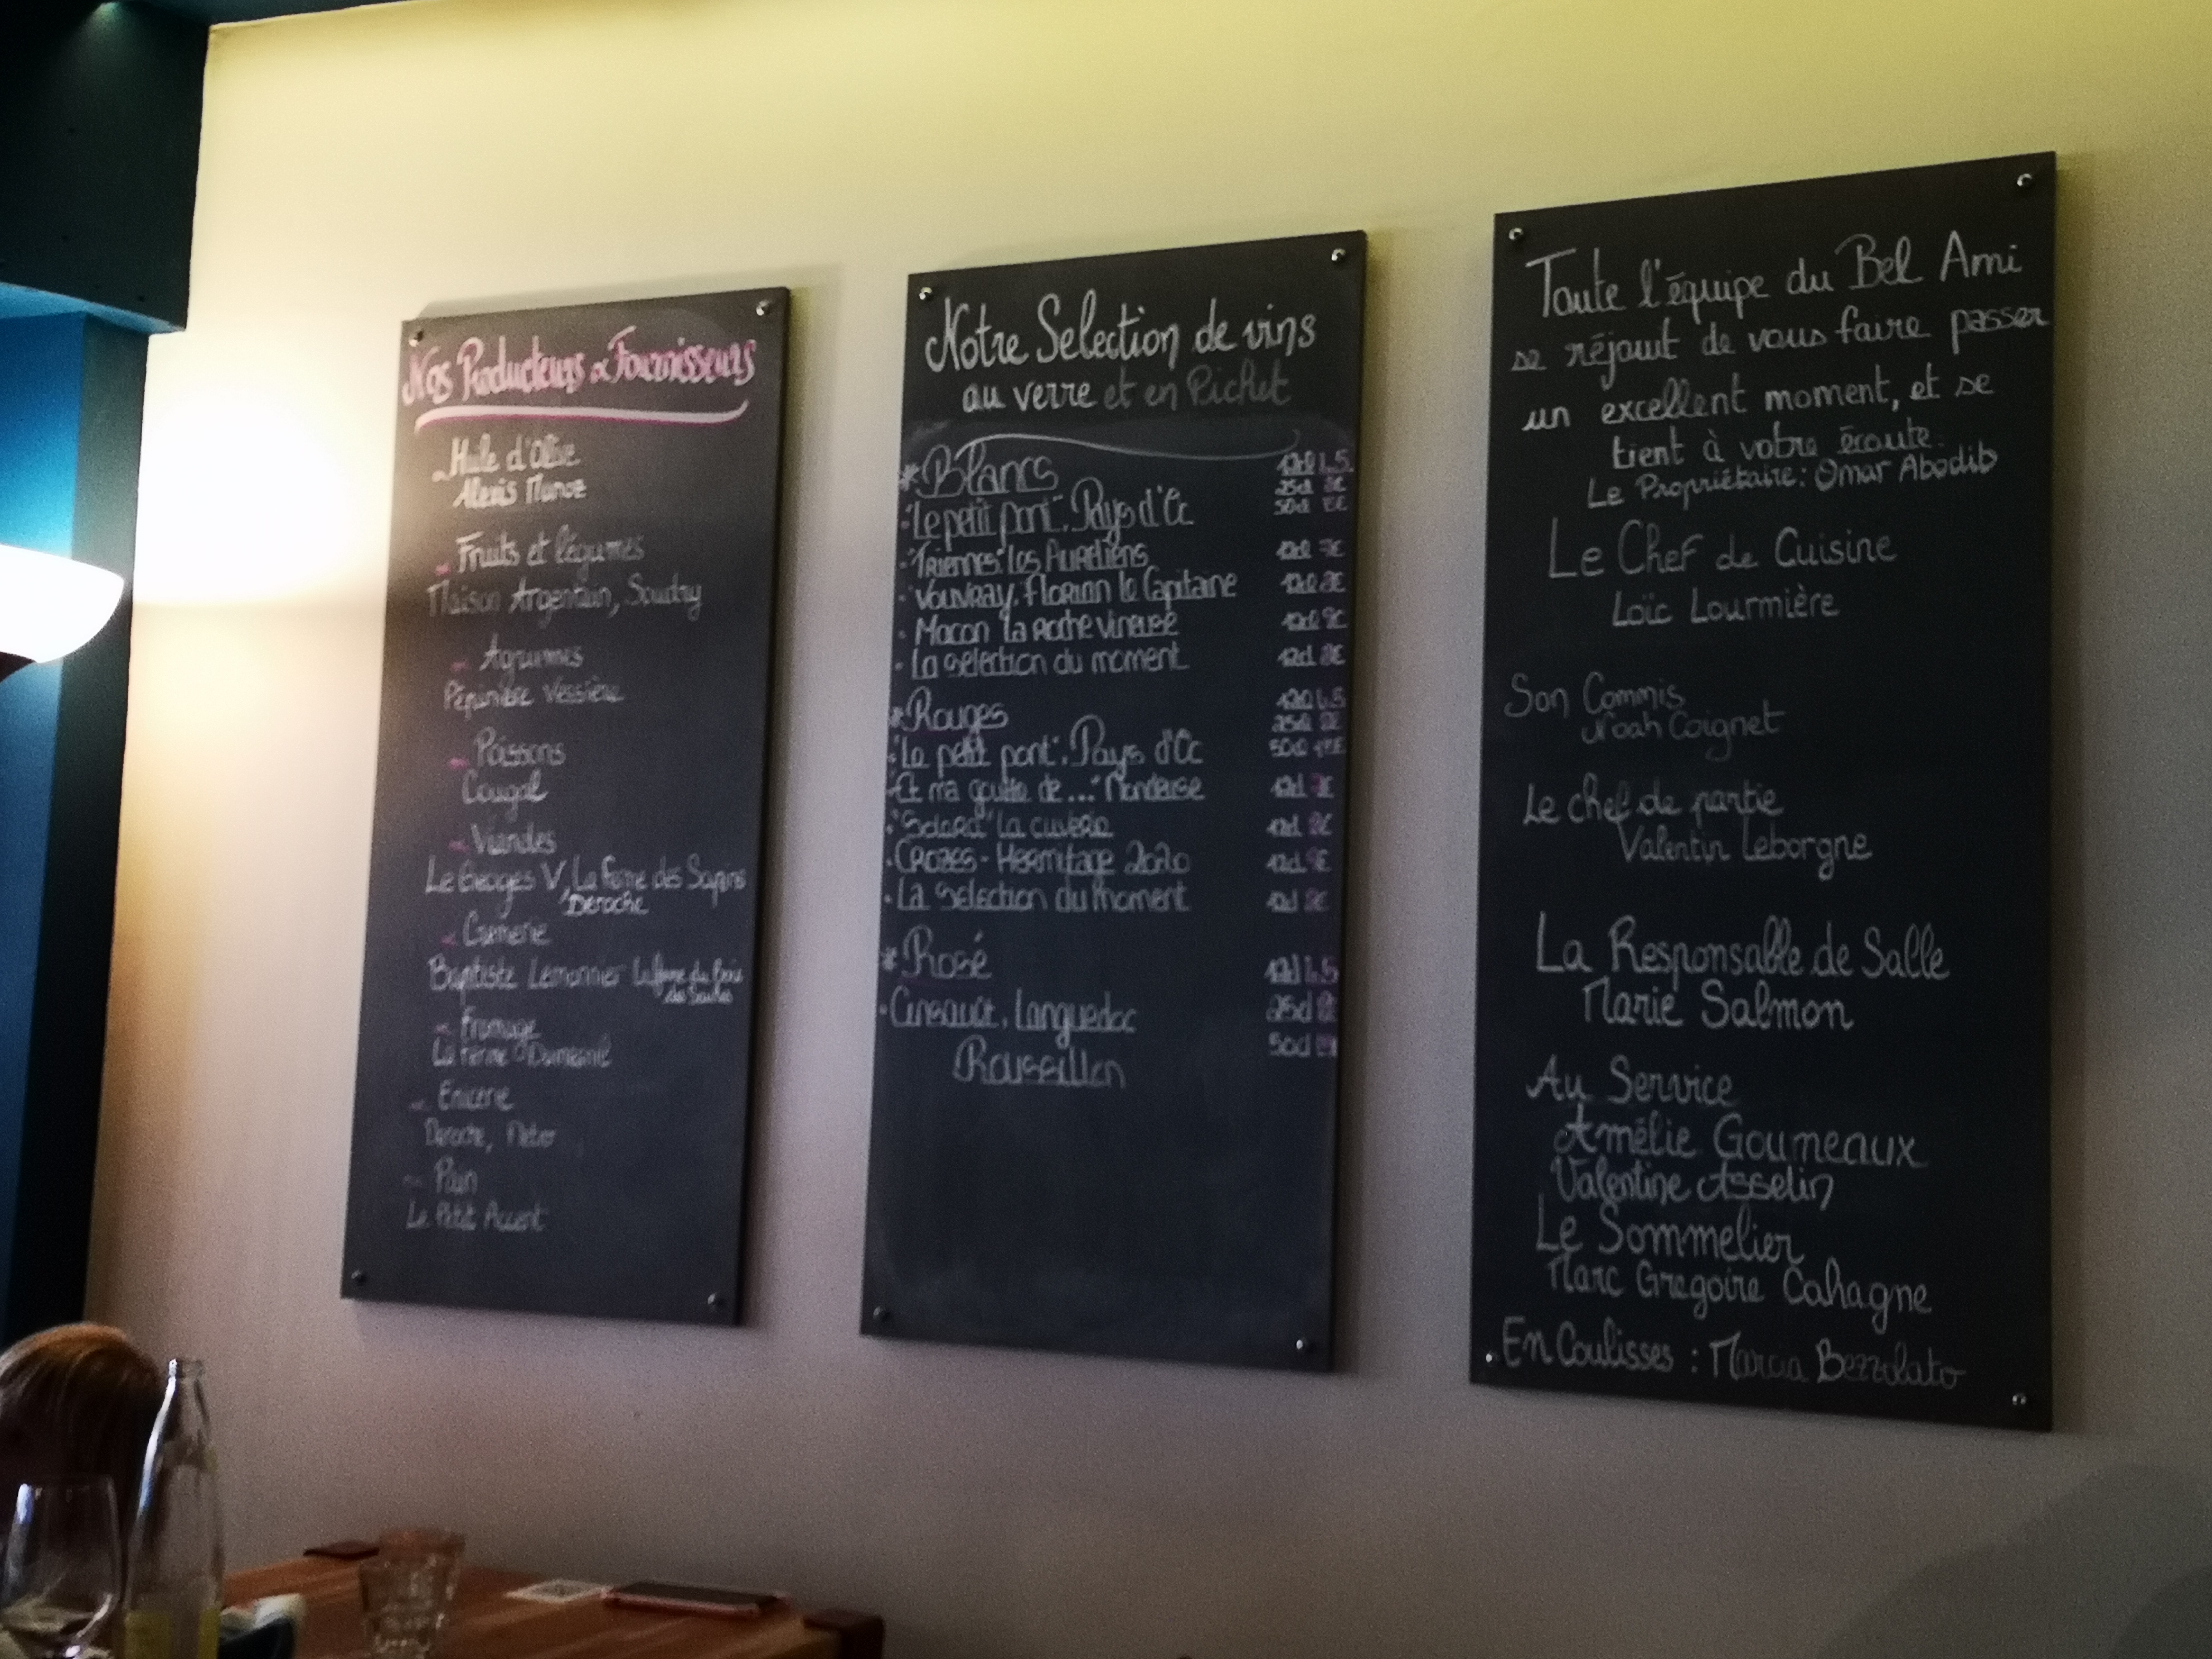 Nos Producteurs & Fournisseurs
Huile d'Olive
Alexis Munoz
Fruits et légumes
Maison Argentain, Soudry
Agrumes
Pépinière Vessière
Poissons
Cougal
Viandes
Le Georges V, La ferme des Sapins
Deroche
Cremerie
Baptiste Lemonnier La ferme du bois
des Saules
Fromage
La ferme
Epicerie
Deroche, Metro
Pain
Le Petit Accent
Notre Selection de vins
au verre et en Pichet
* Blancs 12cl 6,5
25cl
50cl
• "Le petit pont". Pays d'Oc
• "Triennes" Les Aureliens 12cl 7€
• Vouvray. Florian le Capitaine 12cl 8€
• Macon la Roche vineuse 12cl 9€
• La selection du moment 12cl 8€
* Rouges 12cl 6,5
25cl
• "Le petit pont". Pays d'Oc 50cl
• "Et ma goutte de..." Mondeuse 12cl 7€
• La cuverie 12cl 8€
• Crozes-Hermitage 2020 12cl 9€
• La selection du moment 12cl 8€
* Rosé 12cl 6,5
• Cinsault, Languedoc 25cl
Roussillon 50cl
Toute l'équipe du Bel Ami
se réjouit de vous faire passer
un excellent moment, et se
tient à votre écoute.
Le Propriétaire: Omar Abodib
Le Chef de Cuisine
Loïc Lourmière
Son Commis
Noah Coignet
Le chef de partie
Valentin Leborgne
La Responsable de Salle
Marie Salmon
Au Service
Amélie Goumeaux
Valentine Asselin
Le Sommelier
Marc Gregoire Cahagne
En Coulisses : Marcia Bezzolato